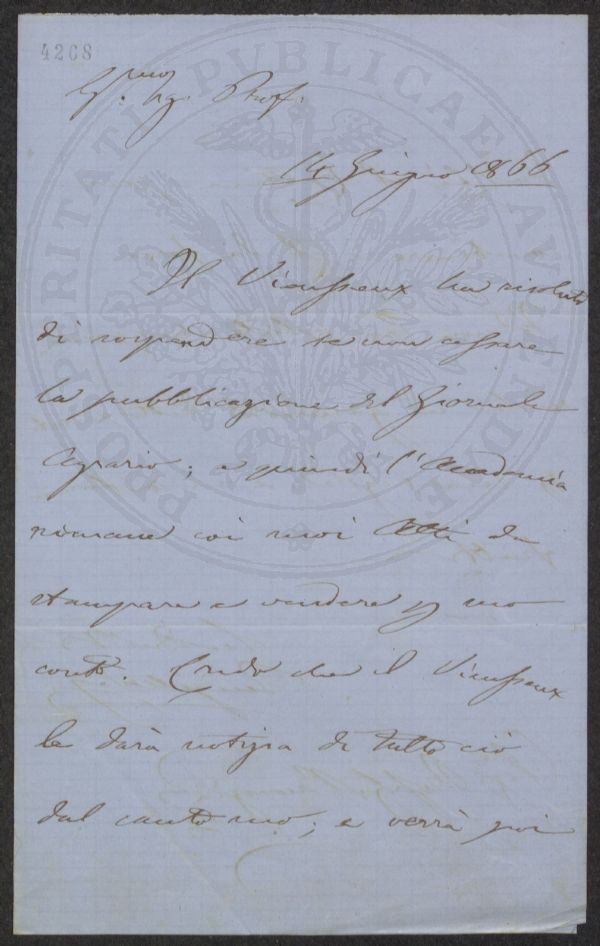 4268
PROSPERITATI PUBLICAE AUGENDAE
Sig. Prof.
14 Giugno 1866
Il Vieusseux ha risoluto
di sospendere se non cessare
la pubblicazione del Giornale
Agrario; e quindi l'Accademia
rimane coi suoi Atti da
stampare e vendere p suo
conto. Credo che il Vieusseux
le darà notizia di tutto ciò
dal canto suo; e verrà poi